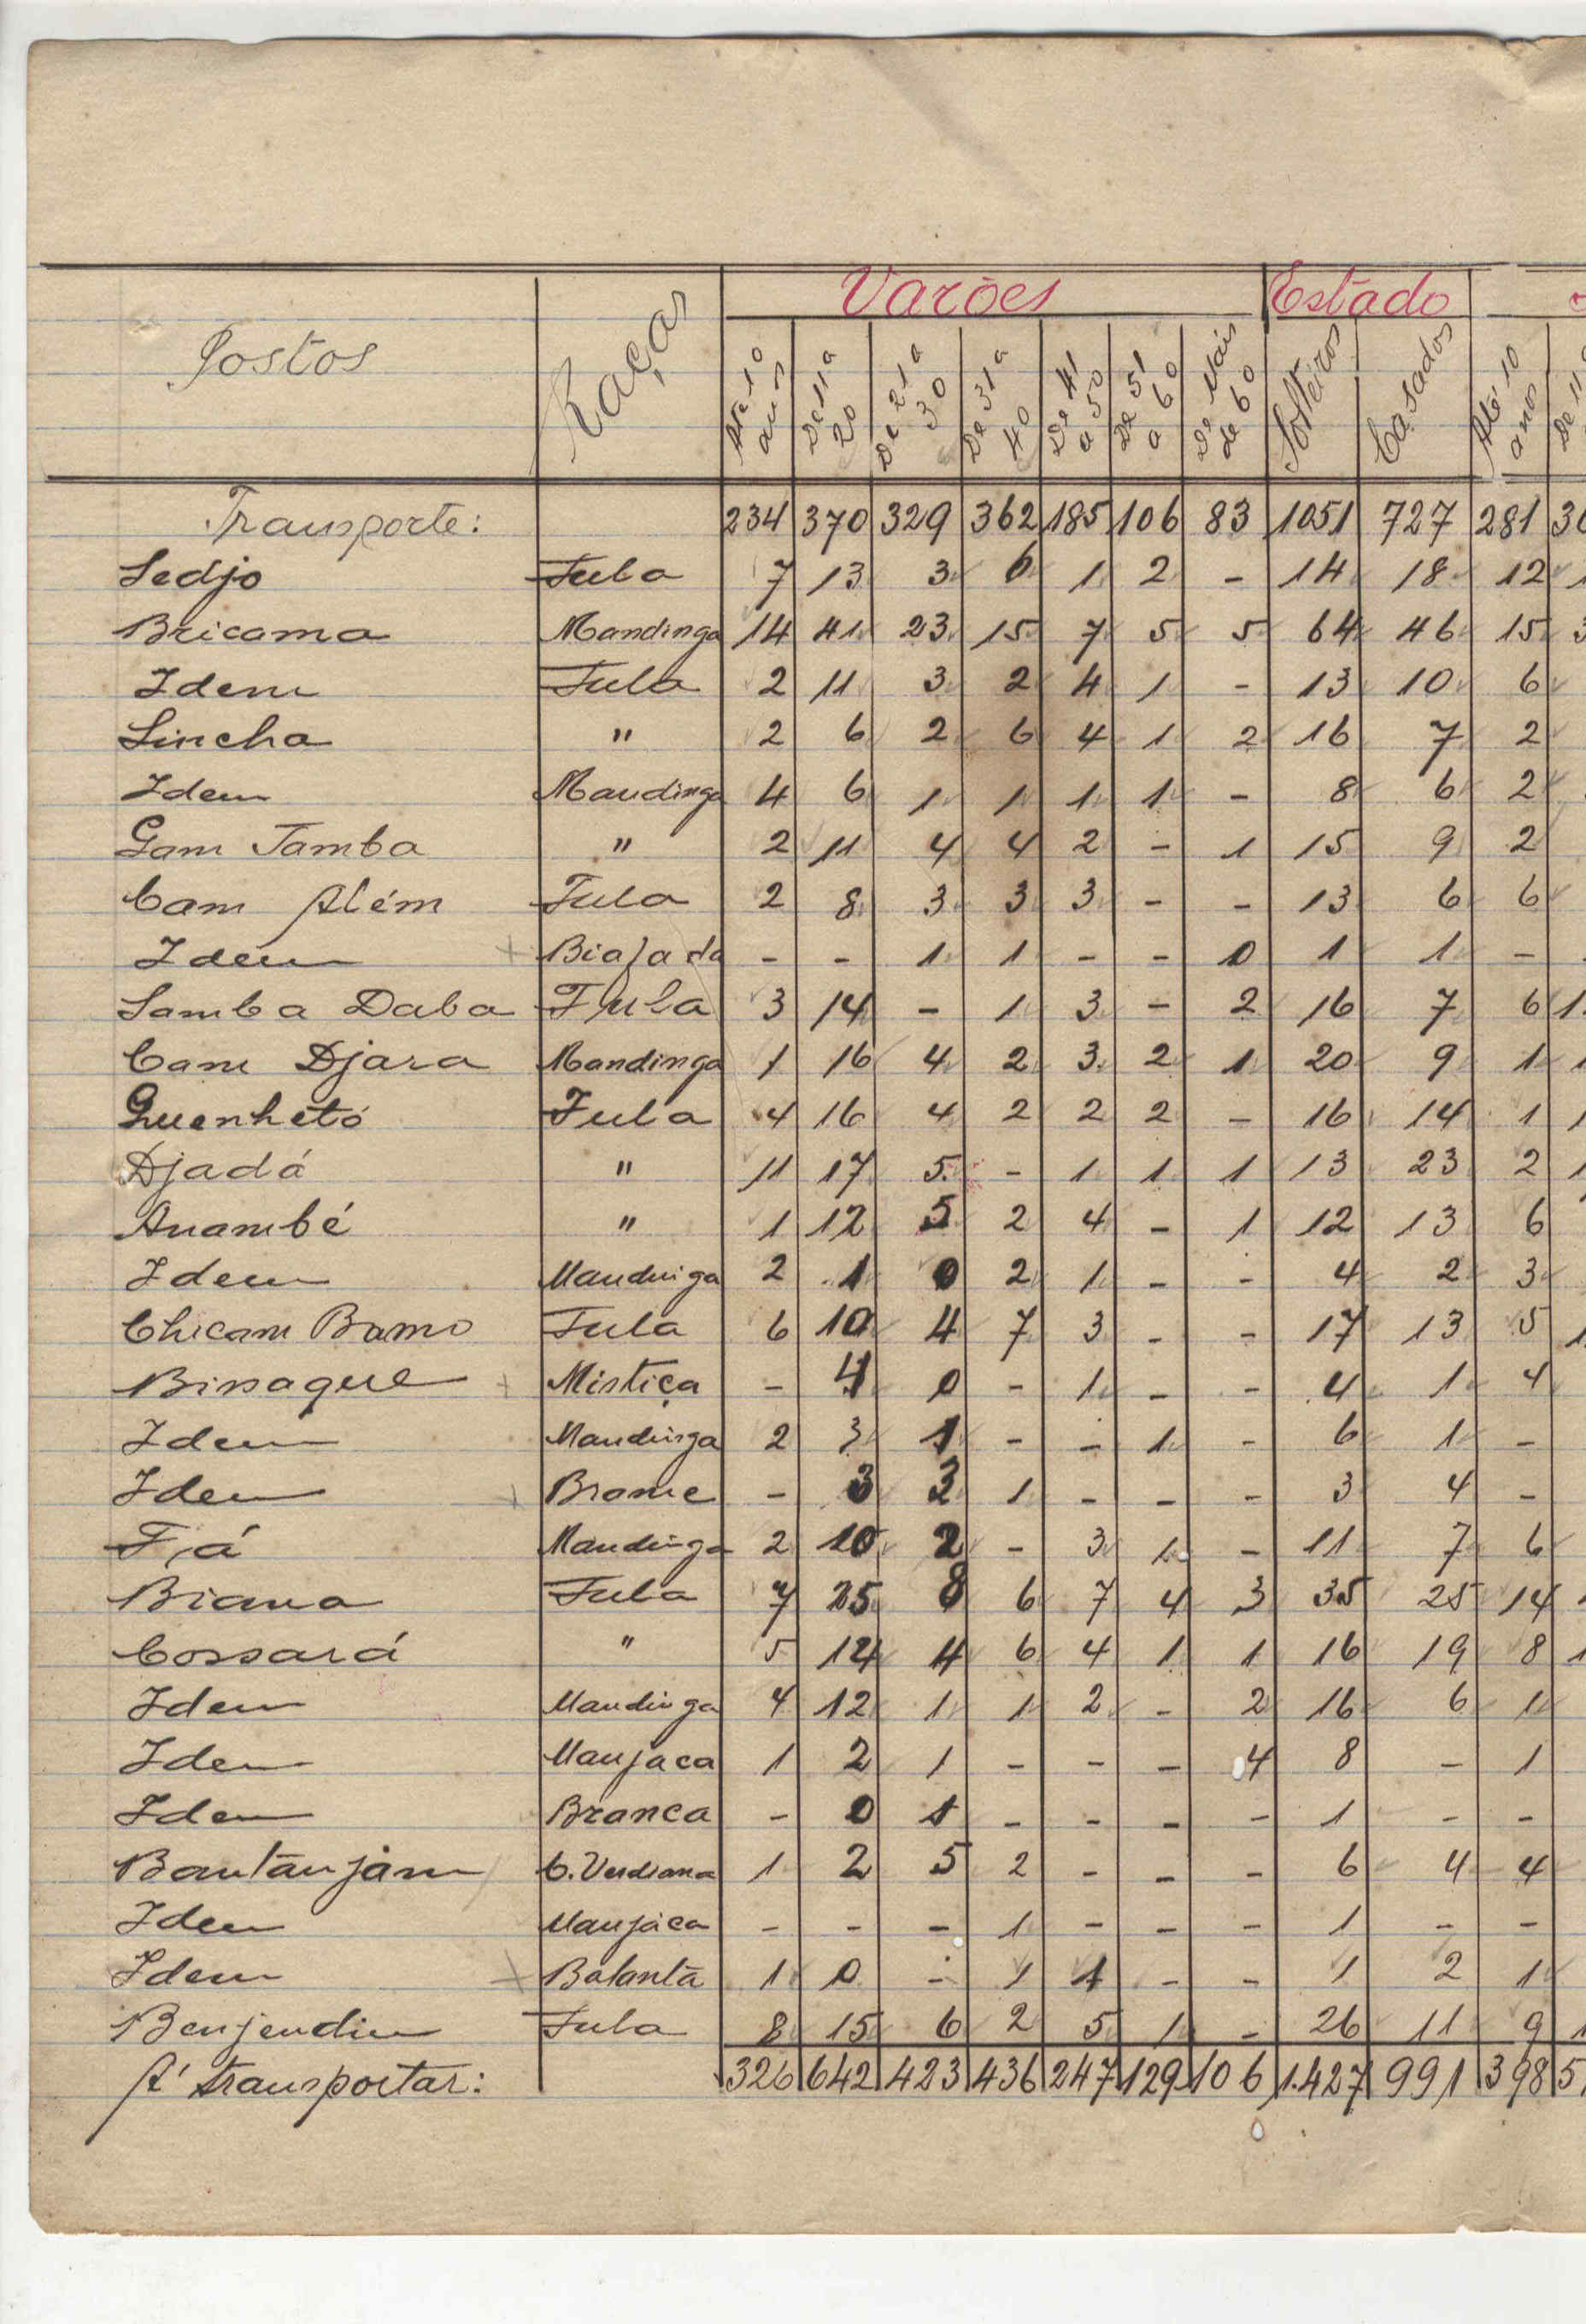 Varões Estado
Postos Raças Até 10 anos De 11 a 20 De 21 a 30 De 31 a 40 De 41 a 50 De 51 a 60 De Mais de 60 Solteiros Casados Até 10 anos De 11
Transporte: 234 370 329 362 185 106 83 1051 727 281
Sedjo Fula 7 13 3 6 1 2 - 14 18 12
Bricama Mandinga 14 41 23 15 7 5 5 64 46 15
Idem Fula 2 11 3 2 4 1 - 13 10 6
Sincha " 2 6 2 6 4 1 2 16 7 2
Idem Mandinga 4 6 1 1 1 1 - 8 6 2
Gam Tamba " 2 11 4 4 2 - 1 15 9 2
Cam Além Fula 2 8 3 3 3 - - 13 6 6
Idem Biafada - - 1 1 - - 0 1 1 -
Samba Daba Fula 3 14 - 1 3 - 2 16 7 6
Cam Djara Mandinga 1 16 4 2 3 2 1 20 9 1
Quenhetó Fula 4 16 4 2 2 2 - 16 14 1
Djadá " 11 17 5 - 1 1 1 13 23 2
Anambé " 1 12 5 2 4 - 1 12 13 6
Idem Mandinga 2 1 0 2 1 - - 4 2 3
Chicam Bamo Fula 6 10 4 7 3 - - 17 13 5
Bissaque Mistiça - 4 0 - 1 - - 4 1 4
Idem Mandinga 2 3 1 - - 1 - 6 1 -
Idem Brame - 3 3 1 - - - 3 4 -
Fá Mandinga 2 10 2 - 3 1 - 11 7 6
Biana Fula 7 25 8 6 7 4 3 35 25 14
Cossará " 5 14 4 6 4 1 1 16 19 8
Idem Mandinga 4 12 1 1 2 - 2 16 6 1
Idem Manjaca 1 2 1 - - - 4 8 - 1
Idem Branca - 0 1 - - - - 1 - -
Bantanjam C. Verdiana 1 2 5 2 - - - 6 4 4
Idem Manjaca - - - 1 - - - 1 - -
Idem Balanta 1 0 - 1 1 - - 1 2 1
Benjendim Fula 8 15 6 2 5 1 - 26 11 9
A' transportar: 326 642 423 436 247 129 106 1.427 991 398